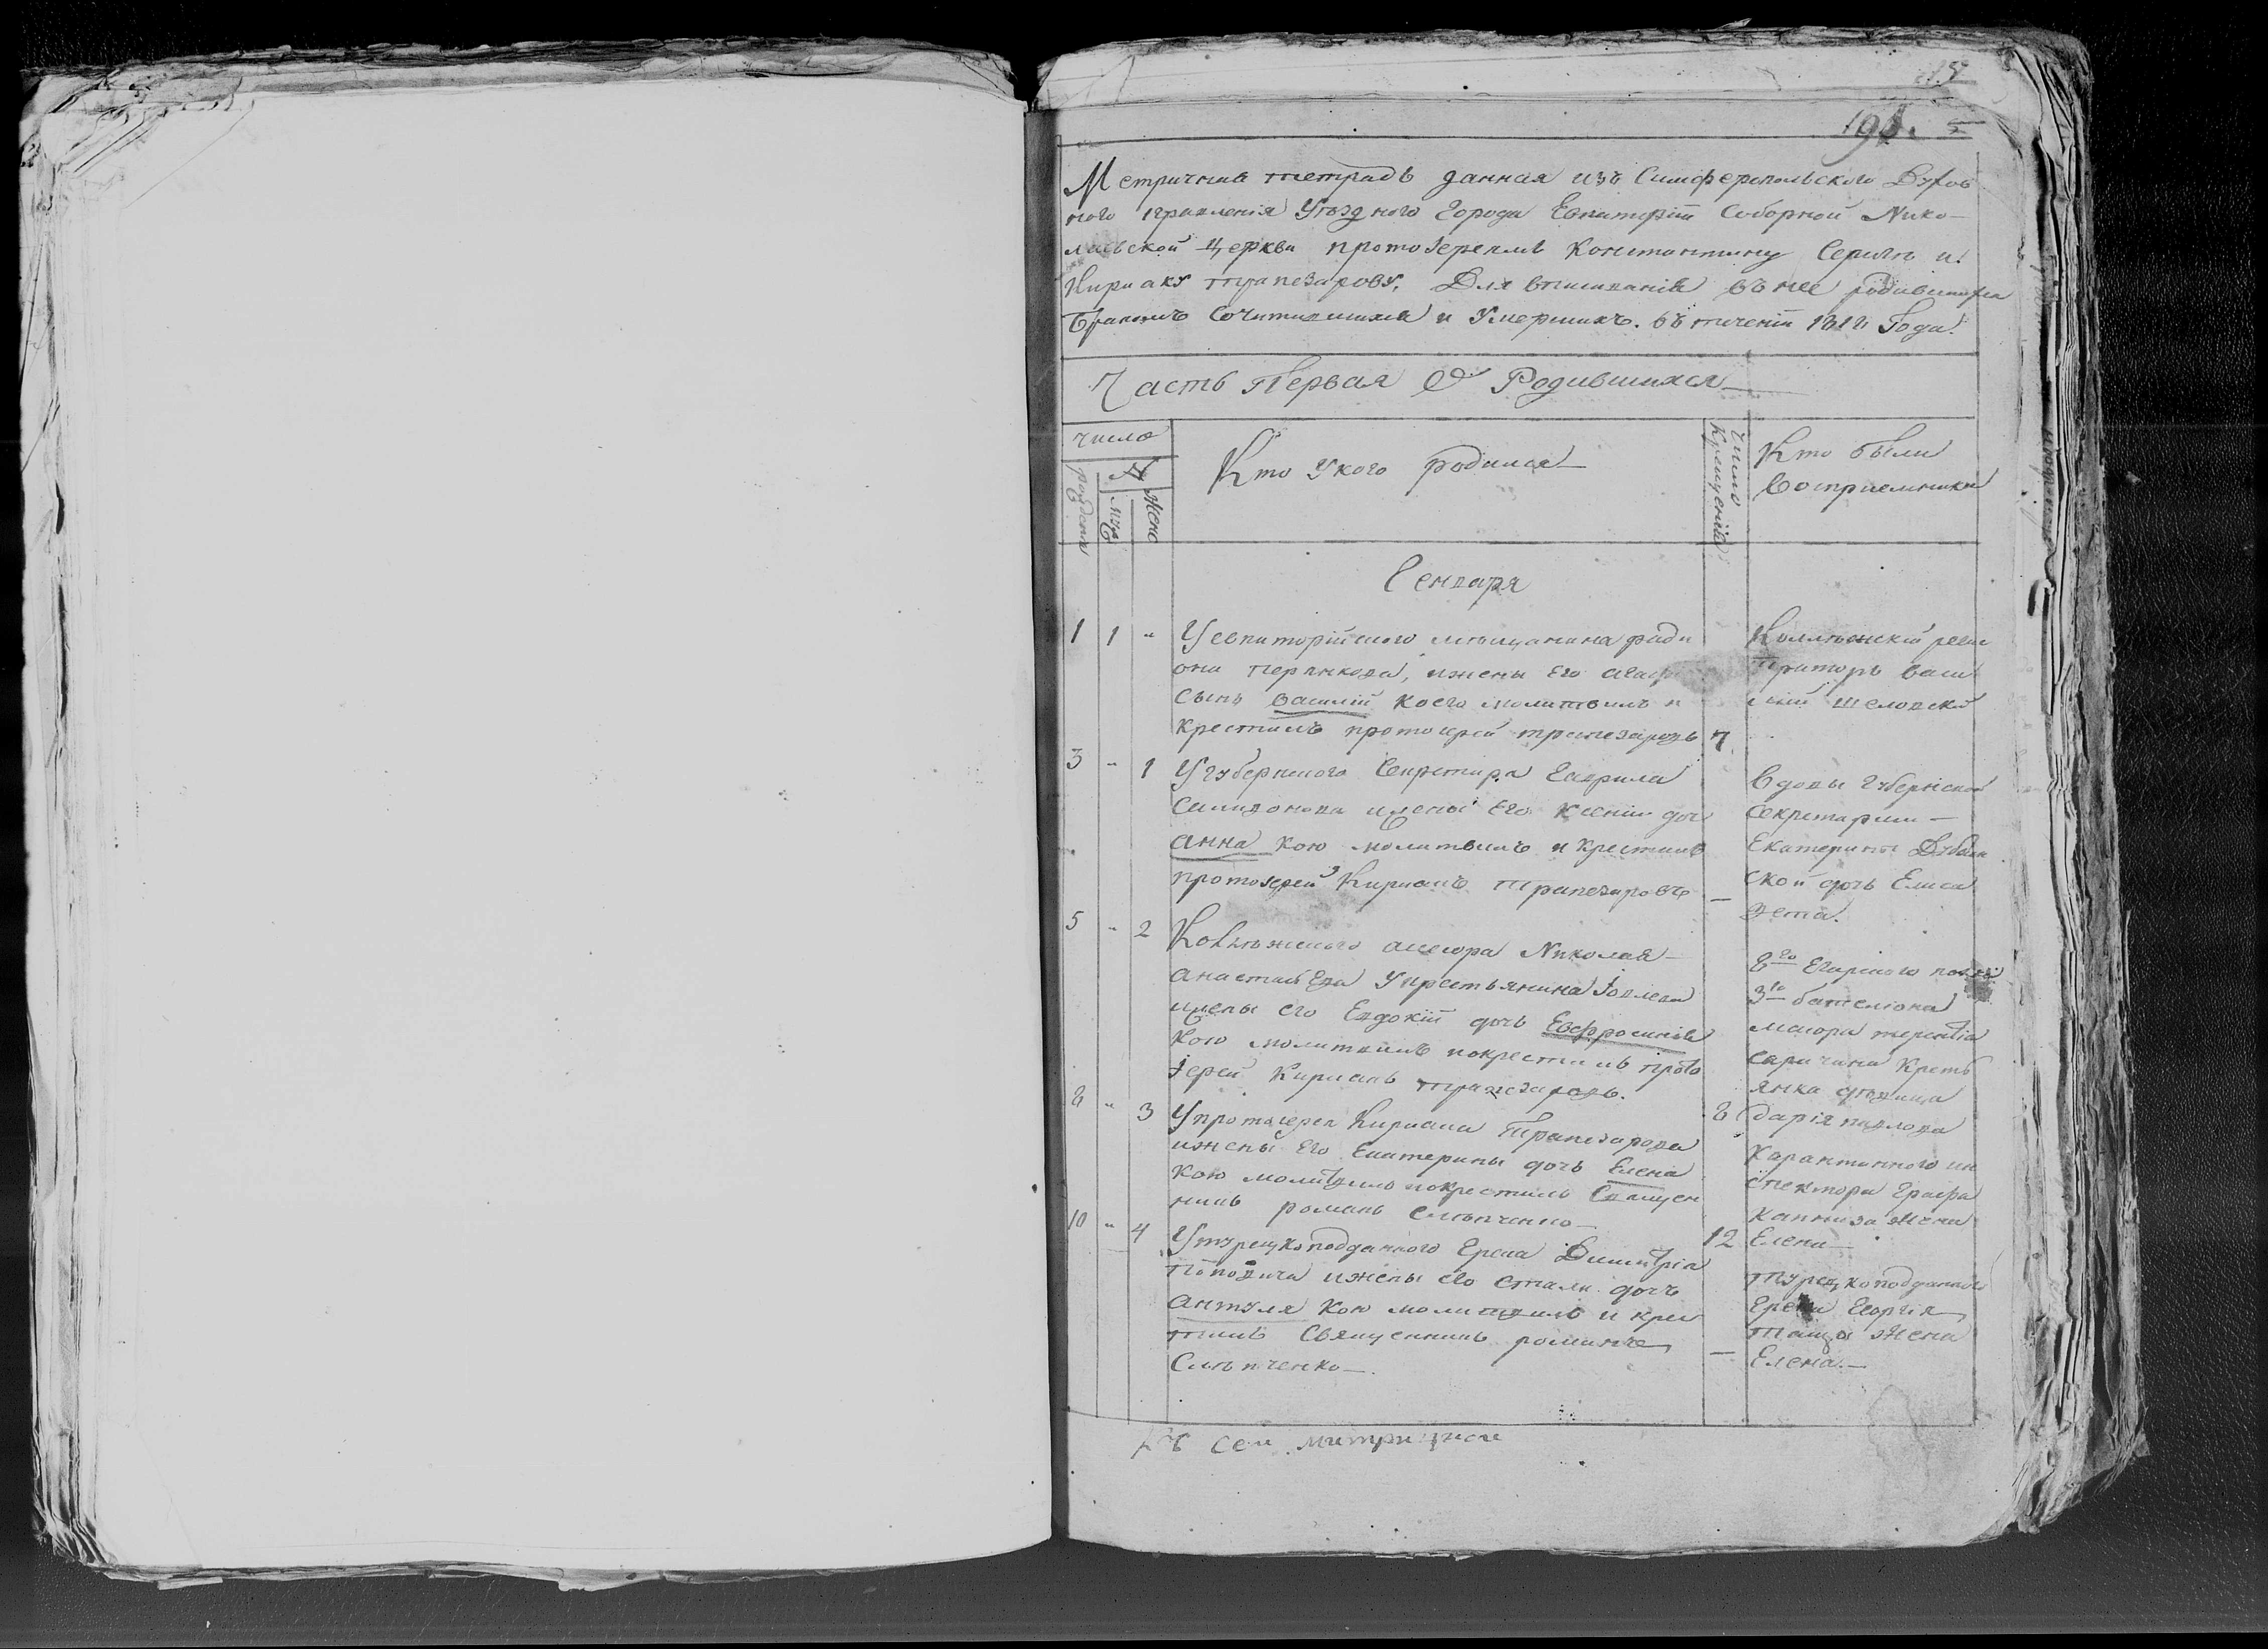 191.
Метричная тетрадь данная изъ Симферопольского Духов
ного правленія Уѣздного Города Евпаторіи Соборной Нико-
льской Церкви протоіереямъ Константину Серижи и
Кириаку трапезарову, Для вписыванія въ нее родившихся
Бракомъ Сочитавшихся и Умершихъ. въ теченіи 1818 Года.
Часть Первая О Родившихся
число
рождения
№
муж
жено
Кто Укого родился
Число Крещенія
Кто были
восприемники
Генваря
1 1 " У евпаторійского мѣщанина роди
она перликова, ижены Его
сынъ василій коего молитвилъ и
крестилъ протоиерей трапезаровъ 7
Коллежскій реги
стриторъ васи
лий
3 " 1 У губернского Секретаря Гаврила
ижены Его ксеніи доч
анна кою молитвилъ и крестилъ
протоіерей Кириакъ трапезаровъ —
вдовы губернской
секретарши —
Екатерины
ской дочь Елиса
вета.
5 " 2 Коллежского ассесора Николая
анастасьева Укрестьянина Іовлева
ижены его Евдокіи дочь Евфросинія
кою молитвилъ икрестилъ прото
іерей Кириакъ трапезаровъ.
8го Егарского полка
3го баталіона
маіора терентіа
саричина Кресть
янка дѣвица
8 дарія павлова
8 " 3 У протоиерея Кириака Трапезарова
ижены Его Екатерины дочь Елена
кою молитвилъ икрестилъ Священ
никъ романъ Слѣпченко —
Карантинного ин
спектора Графа
капниза жена
12 Елена —
10 " 4 У турецкоподданного Грека Димитріа
Поповича ижены его стали дочь
антуля кою молитвилъ и крес
тилъ Священникъ романъ
Слѣпченко —.
турецкоподданого
Грека Георгія
жена
— Елена. —
Къ сей